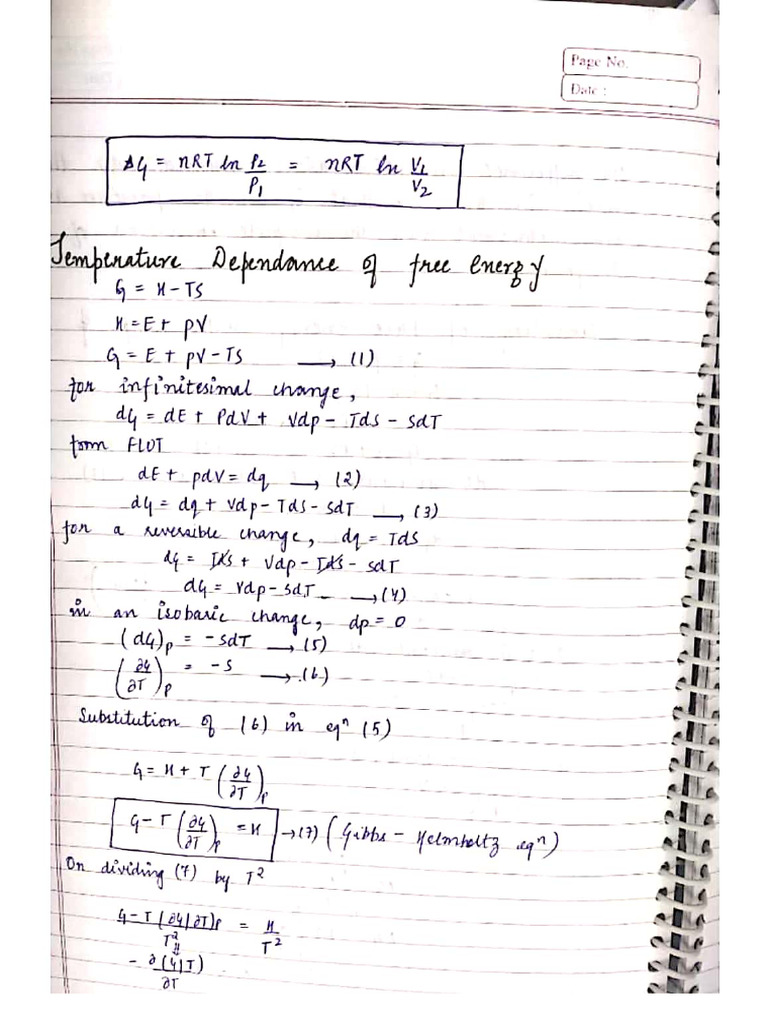 Page No.
Date :
ΔG = nRT ln P2/P1 = nRT ln V1/V2
Temperature Dependance of free energy
G = H - TS
H = E + PV
G = E + PV - TS ⟶ (1)
for infinitesimal change,
dG = dE + PdV + Vdp - Tds - SdT
from FLOT
dE + pdV = dq ⟶ (2)
dG = dq + Vdp - Tds - SdT ⟶ (3)
for a reversible change, dq = Tds
dG = Tds + Vdp - Tds - SdT
dG = Vdp - SdT ⟶ (4)
in an isobaric change, dp = 0
(dG)p = -SdT ⟶ (5)
(∂G/∂T)p = -S ⟶ (6)
Substitution of (6) in eqn (5)
G = H + T (∂G/∂T)p
G - T (∂G/∂T)p = H → (7) (Gibbs - Helmholtz eqn)
On dividing (7) by T²
G - T(∂G/∂T)p / T² = H/T²
-∂(G/T)/∂T